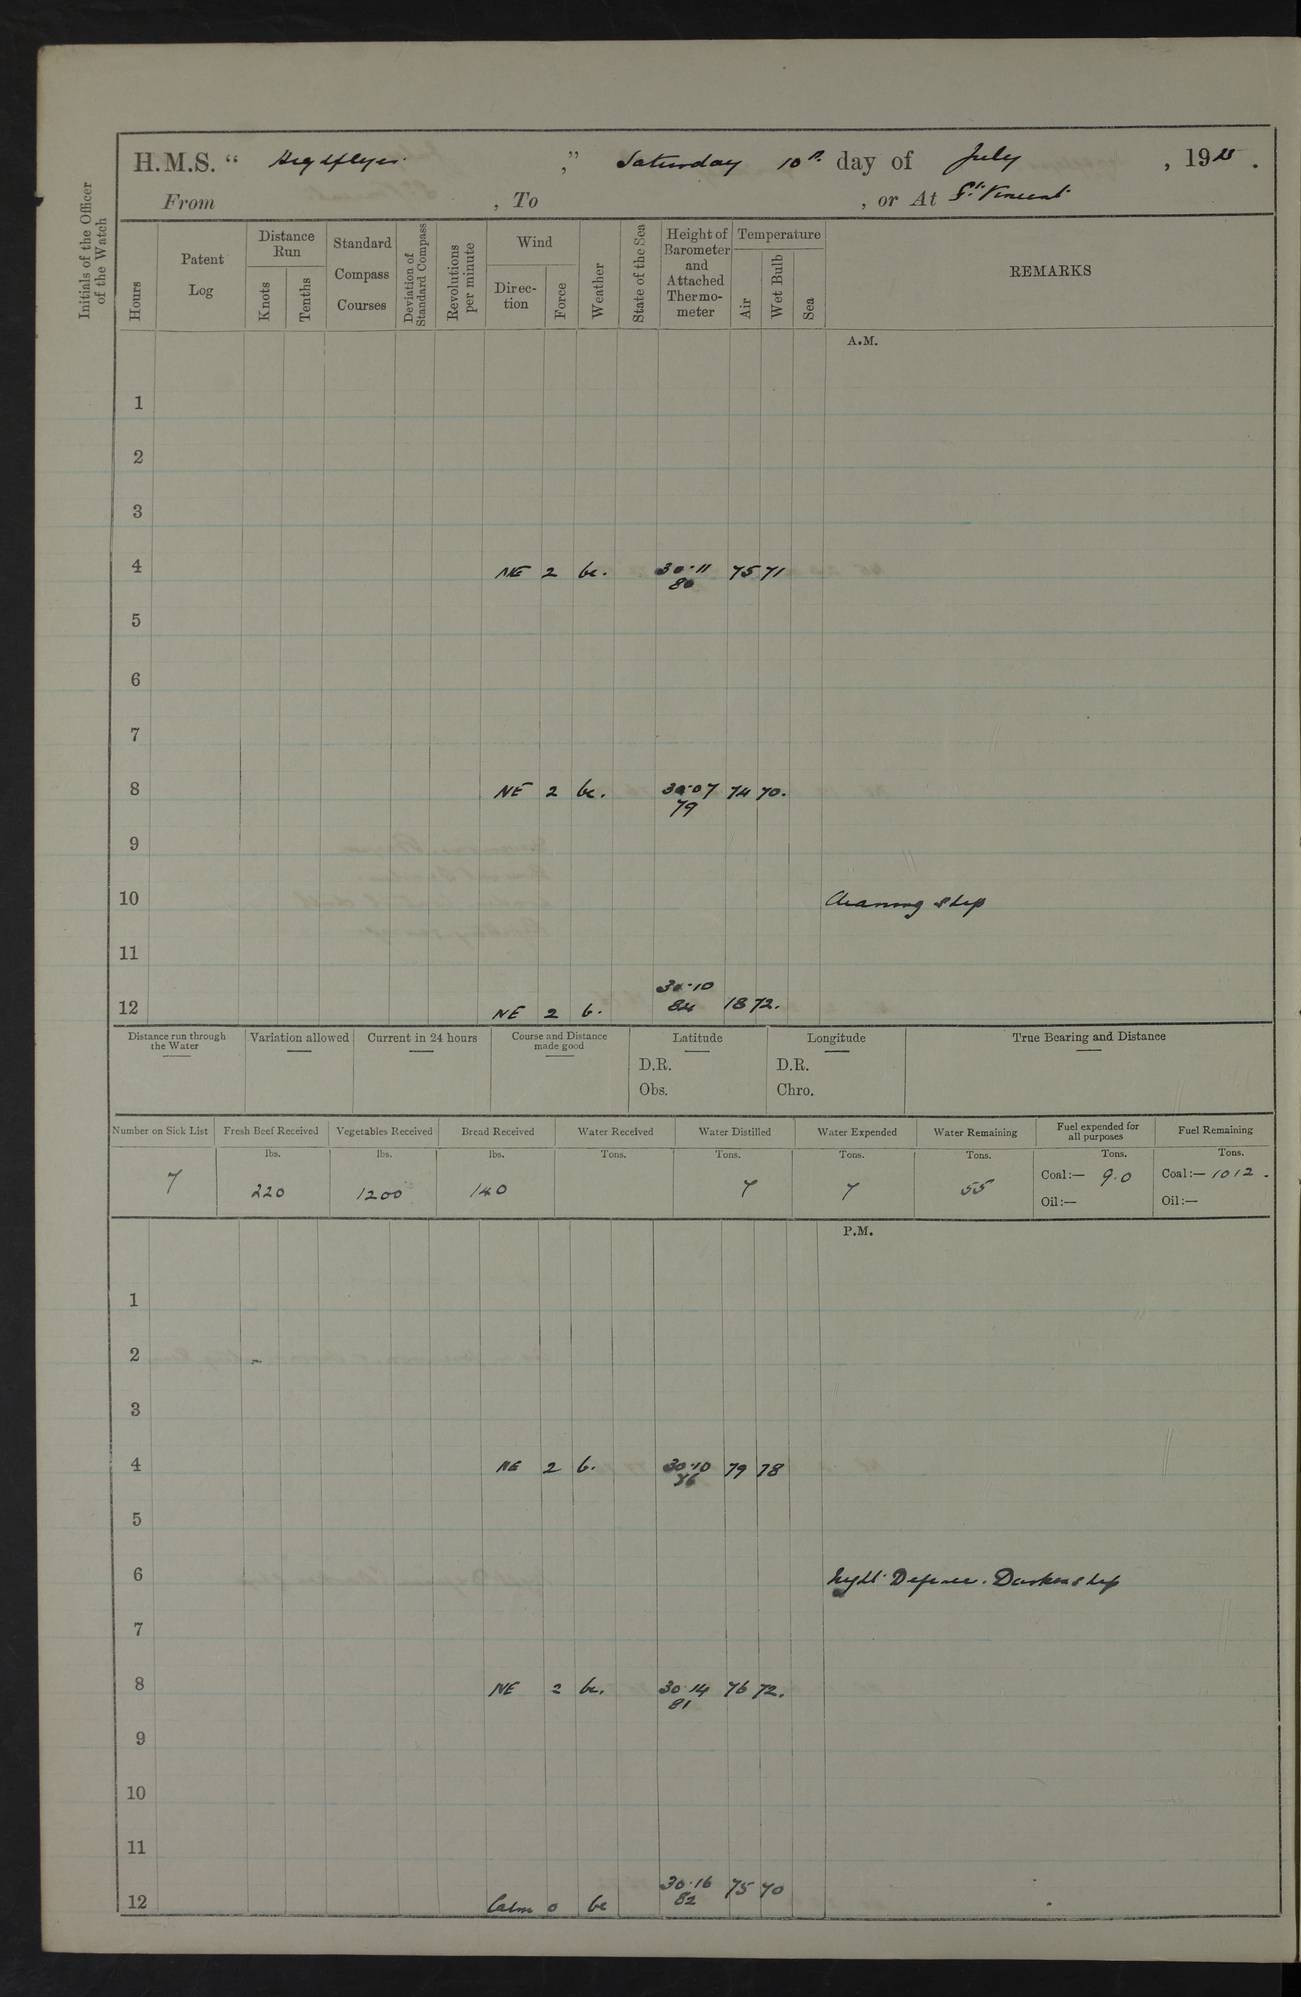 H.M.S. “ Highflyer ,” Saturday 10th day of July , 1915 .
From , To , or At St. Vincent
Initials of the Officer of the Watch
Hours
Patent Log
Distance Run
Knots
Tenths
Standard Compass Courses
Deviation of Standard Compass
Revolutions per minute
Wind
Direc-tion
Force
Weather
State of the Sea
Height of Barometer and Attached Thermo-meter
Temperature
Air
Wet Bulb
Sea
REMARKS
A.M.
1
2
3
4 NE 2 bc. 30·11 75 71
80
5
6
7
8 NE 2 bc. 30·07 74 70.
79
9
10 Cleaning ship
11
30·10
12 NE 2 b. 84 18 72.
Distance run through the Water
Variation allowed
Current in 24 hours
Course and Distance made good
Latitude
D.R.
Obs.
Longitude
D.R.
Chro.
True Bearing and Distance
Number on Sick List Fresh Beef Received Vegetables Received Bread Received Water Received Water Distilled Water Expended Water Remaining Fuel expended for all purposes Fuel Remaining
lbs. lbs. lbs. Tons. Tons. Tons. Tons. Tons. Tons.
7 220 1200 140 7 7 55 Coal:— 9.0 Coal:— 1012.
Oil:— Oil:—
P.M.
1
2
3
4 NE 2 b. 30·10 79 78
5
6 Night Defence. Darken ship
7
8 NE 2 bc. 30·14 76 72.
81
9
10
11
30·16 75 70
12 Calm 0 bc 82